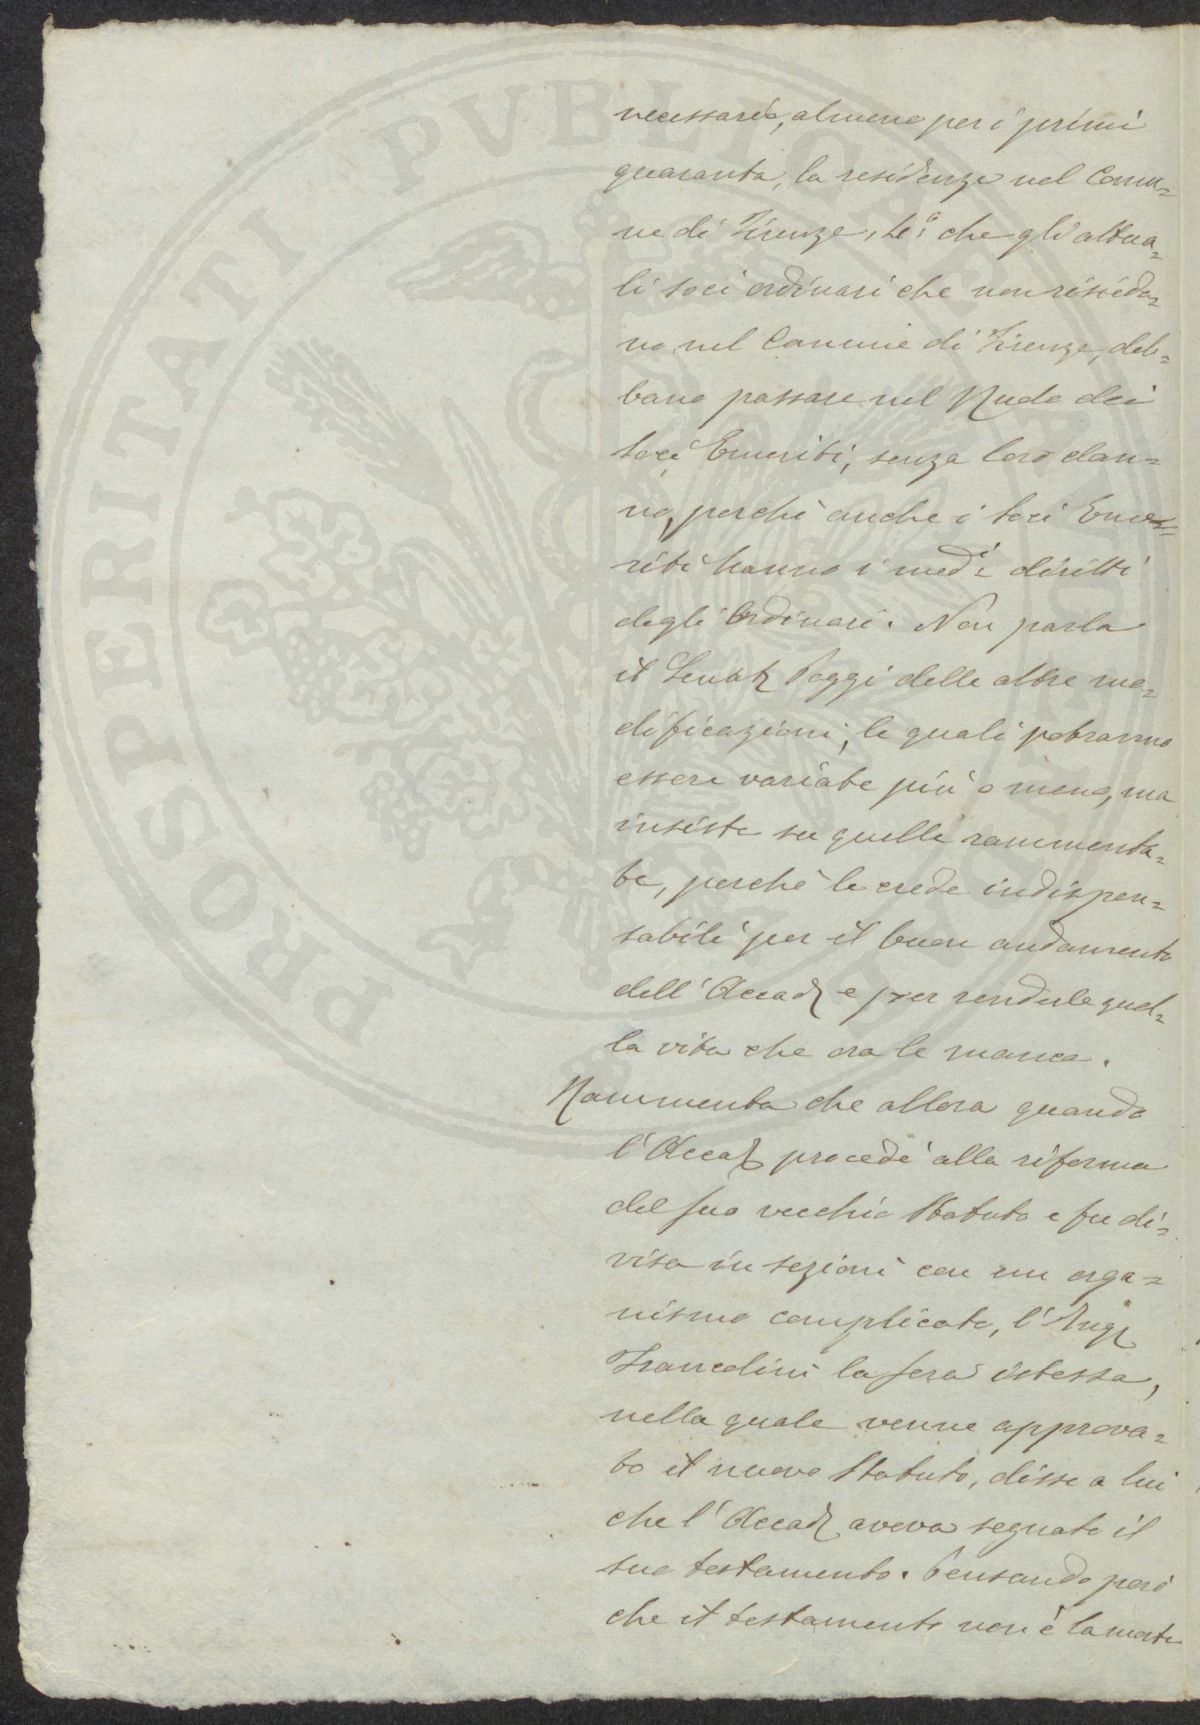 PROSPERITATI PVBLICAE
necessario, almeno per i primi
quaranta, la residenza nel Comu=
ne di Firenze, che gli attua=
li soci ordinari che non risiedo=
no nel Comune di Firenze, deb=
bano passare nel Ruolo dei
soci Emeriti, senza loro dan=
no, perchè anche i soci Eme=
riti hanno i med.i diritti
degli Ordinari. Non parla
il Senat. Poggi delle altre mo=
dificazioni, le quali potranno
essere variate più o meno, ma
insiste su quelle rammenta=
te, perchè le crede indispen=
sabili per il buon andamento
dell'Accad. e per renderle quel=
la vita che ora le manca.
Rammenta che allora quando
l'Accad. procedè alla riforma
del suo vecchio Statuto e fu di=
visa in sezioni con un orga=
nismo complicato, l'Ing.
Francolini la sera istessa,
nella quale venne approva=
to il nuovo Statuto, disse a lui
che l'Accad. aveva segnato il
suo testamento. Pensando però
che il testamento non è la morte